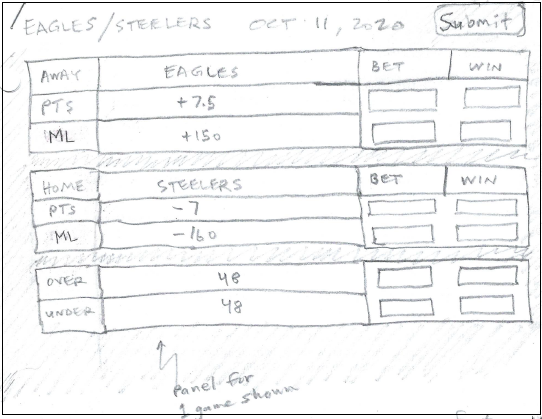 EAGLES/STEELERS OCT 11, 2020 Submit
AWAY EAGLES BET WIN
PTS +7.5
ML +150
HOME STEELERS BET WIN
PTS -7
ML -160
OVER 48
UNDER 48
Panel for
1 game shown